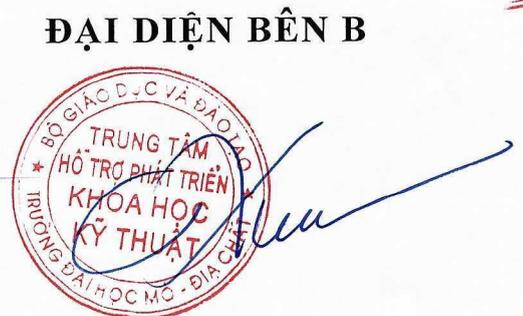 ĐẠI DIỆN BÊN B
BỘ GIÁO DỤC VÀ ĐÀO TẠO
TRUNG TÂM
HỖ TRỢ PHÁT TRIỂN
KHOA HỌC
KỸ THUẬT
TRƯỜNG ĐẠI HỌC MỎ - ĐỊA CHẤT